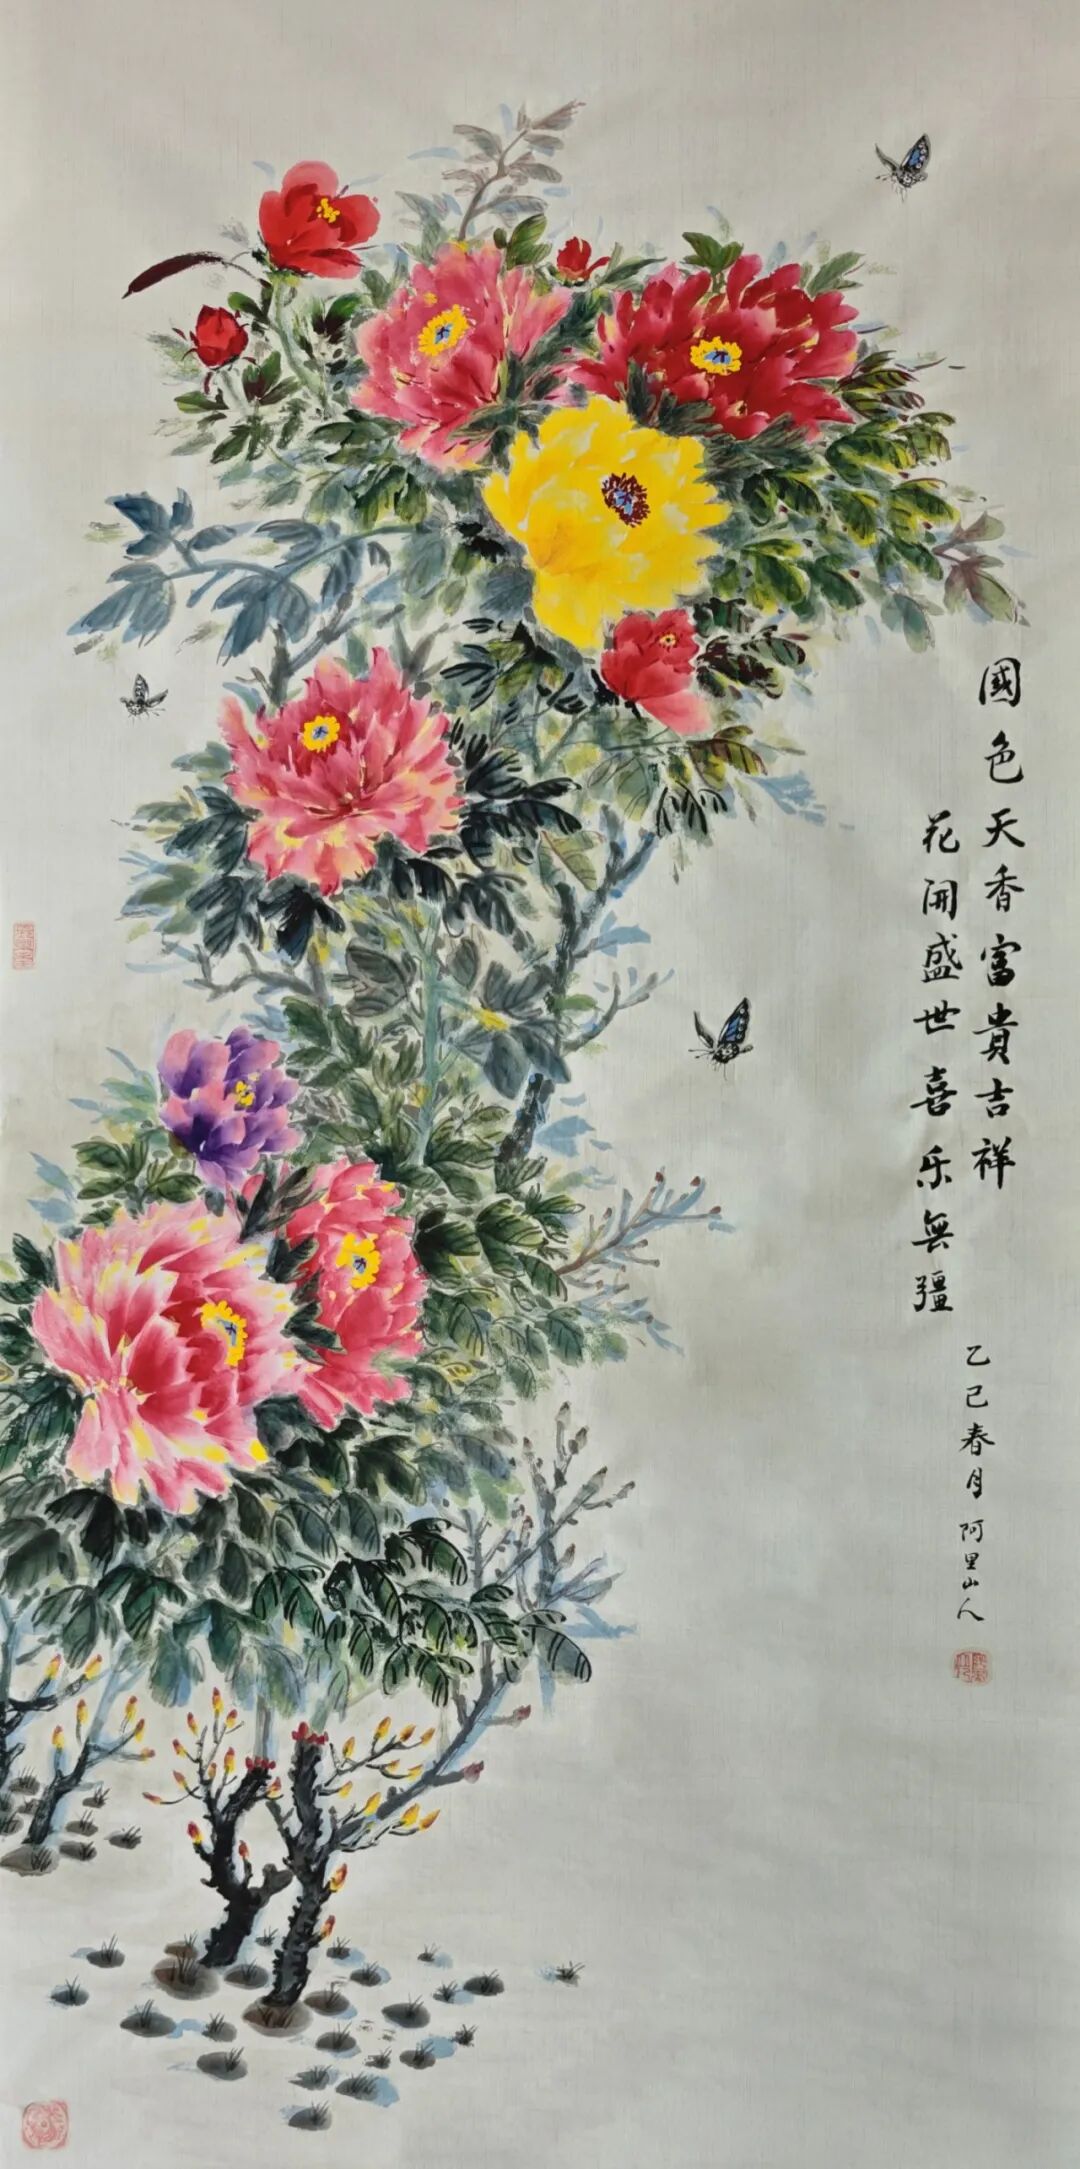 國色天香富貴吉祥
花開盛世喜乐無疆
乙巳春月 阿里山人